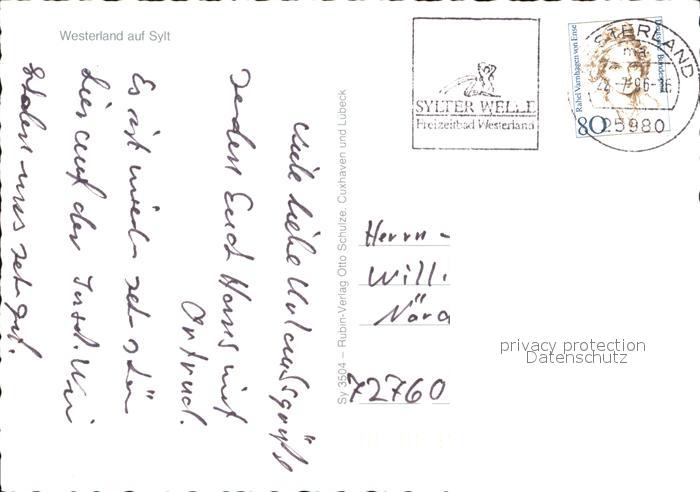 Westerland auf Sylt
viele liebe Urlaubsgrüße
senden Euch Hans mit
Ortrud.
Es ist wieder sehr schön
hier auf der Insel. Wir
uns sehr gut.
Sy 3504 – Rubin-Verlag Otto Schulze, Cuxhaven und Lübeck
SYLTER WELLE
Freizeitbad Westerland
Rahel Varnhagen von Ense
Deutsche Bundespost
80
WESTERLAND
mA
22-7.96-16
25980
Herrn -
Will
72760
privacy protection
Datenschutz